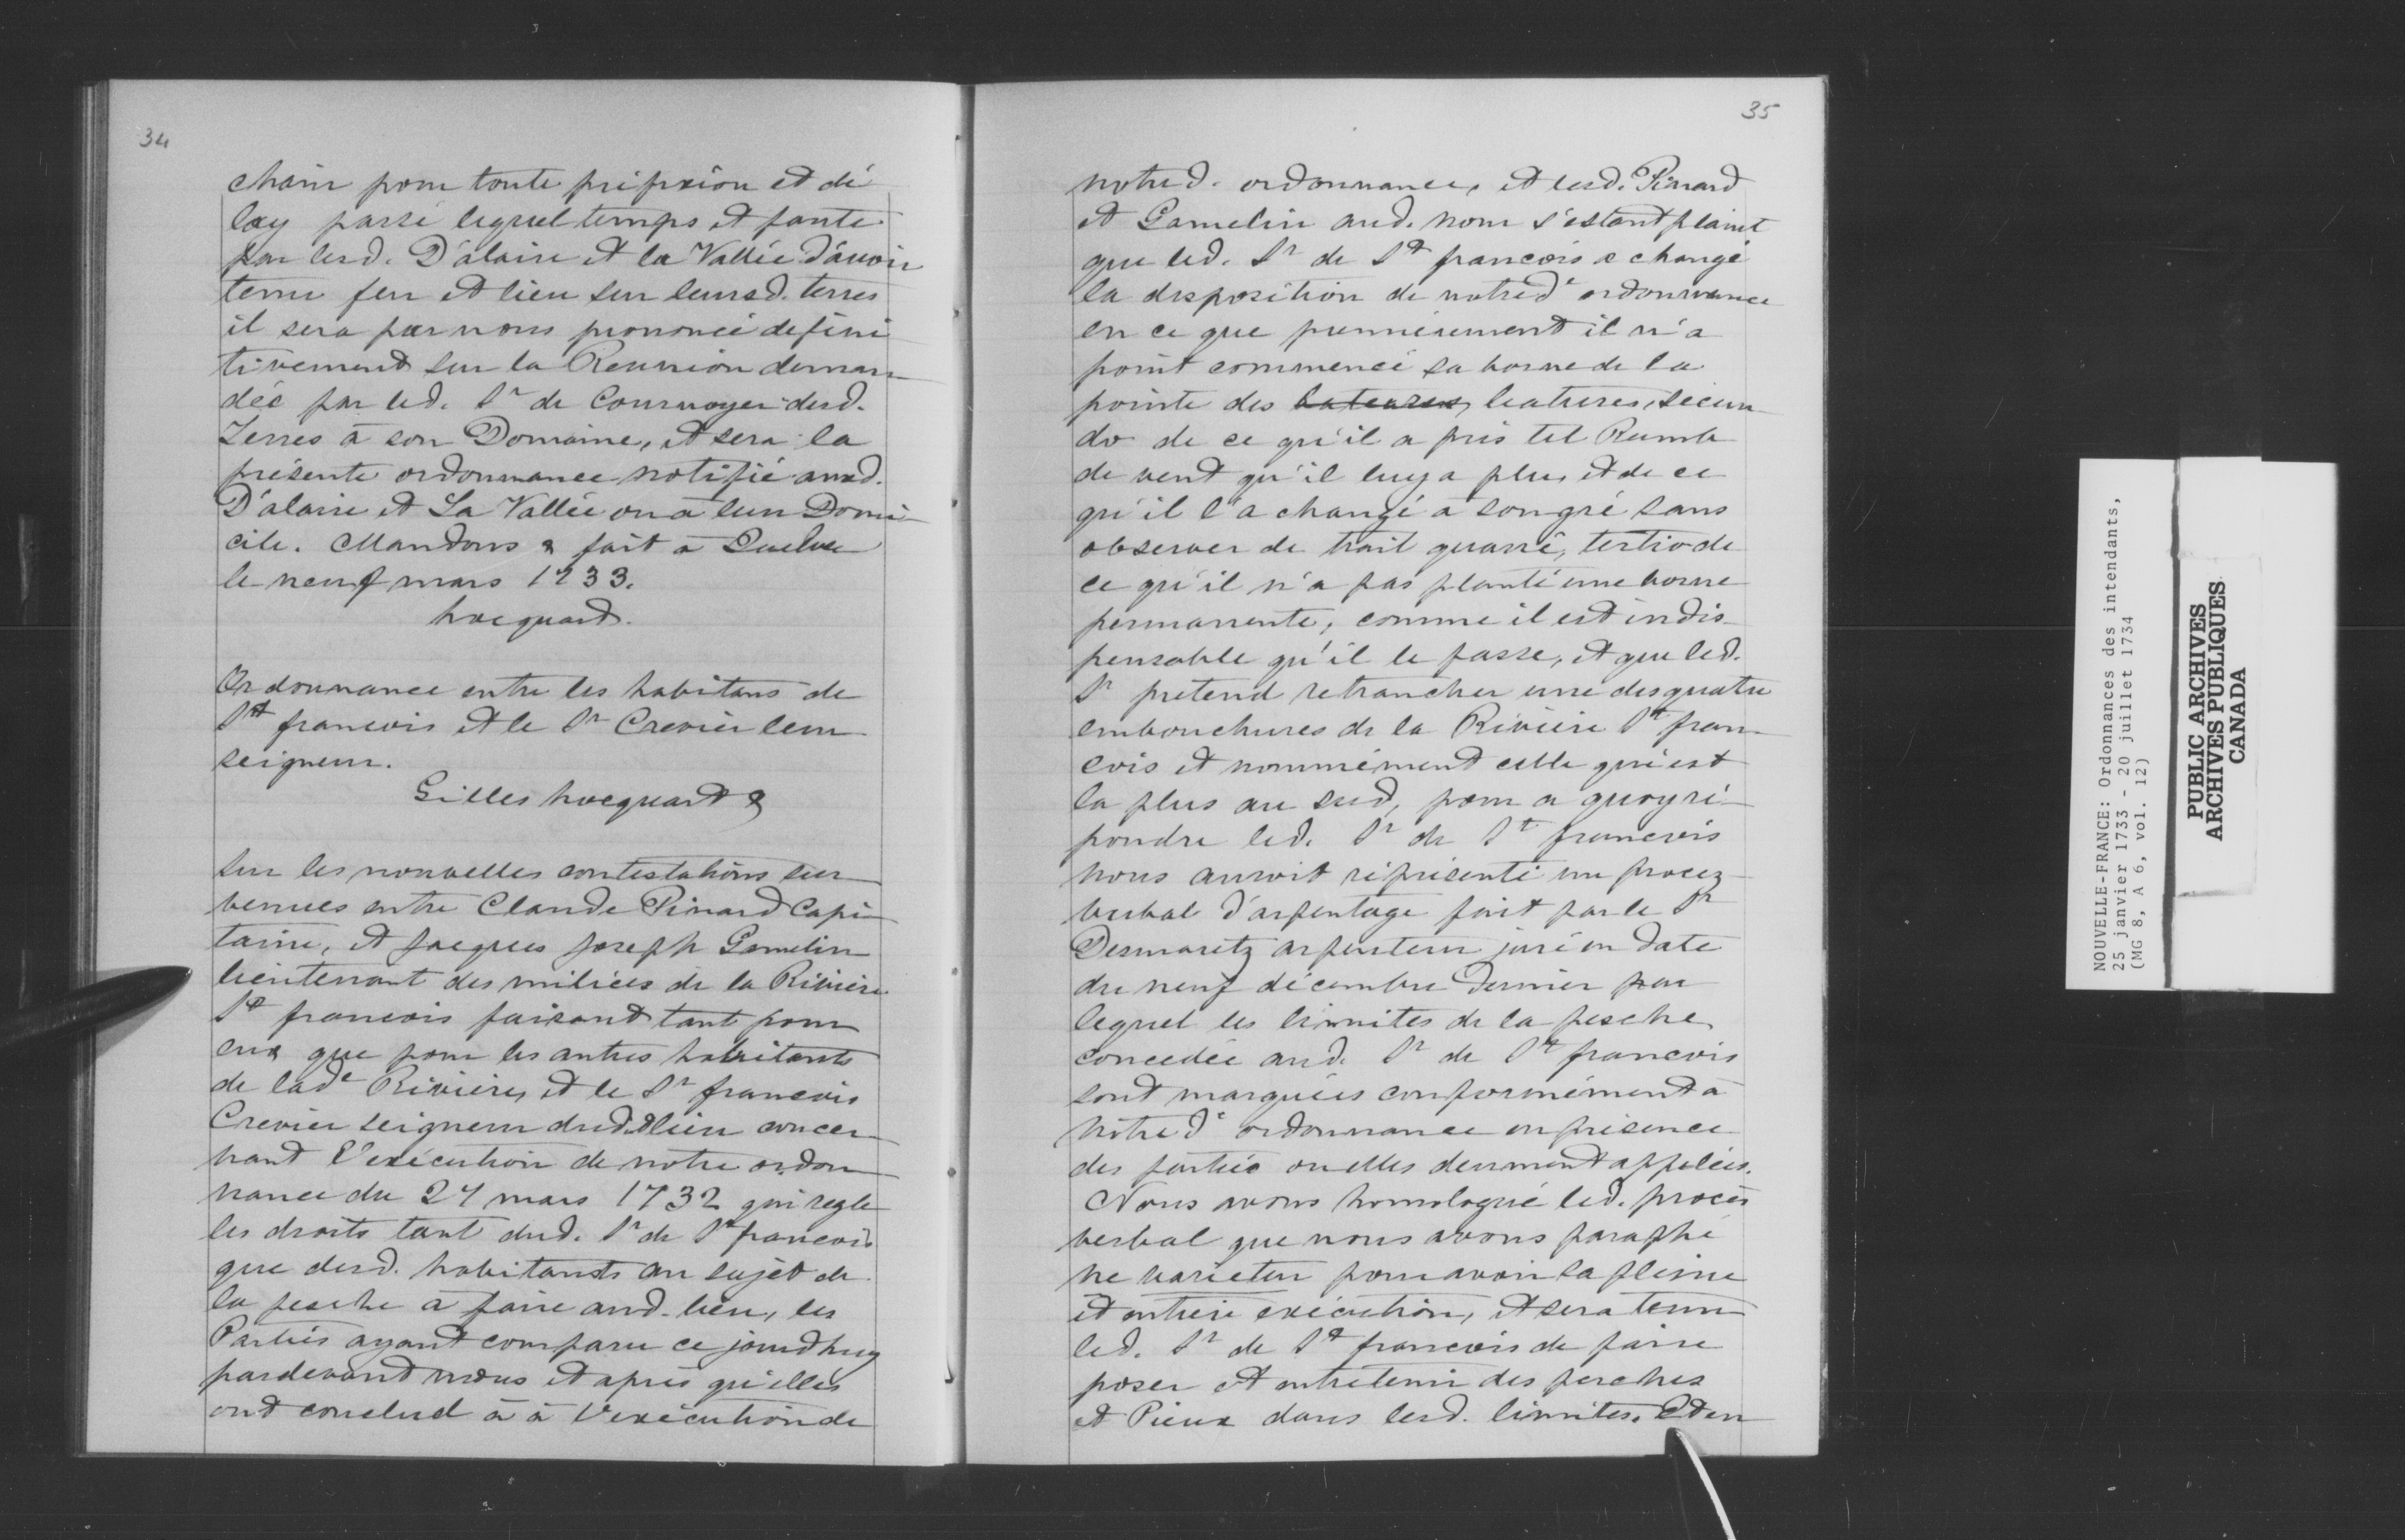 34
chain pour toute préfixion et dé
lay passé lequel temps et faute
par lesd. D'alaire et la Vallée d'avoir
tenu feu et lieu sur leursd. terres
il sera par nous prononcé défini
tivement sur la Reunion deman
dée par led. Sr de Cournoyer desd.
Terres à son Domaine, et sera la
présente ordonnance notifié auxd.
D'alaire et La Vallée ou à leur Domi
cile. Mandons & fait à Quebec
le neuf mars 1733.
hocquart.
Ordonnance entre les habitans de
St francois et le Sr Crevier leur
seigneur.
Gilles hocquart &
Sur les nouvelles contestations sur
venues entre Claude Pinard Capi
taine, et Jacques Joseph Gamelin
lieutenant des milices de la Riviere
St francois faisant tant pour
eux que pour les autres habitants
de lade Riviere, et le Sr francois
Crevier seigneur dud. lieu concer
nant l'exécution de notre ordon
nance du 27 mars 1732 qui regle
les droits tant dud. Sr de St francois
que desd. habitants au sujet de
la pesche à faire aud. lieu, les
Parties ayant comparu ce jourdhuy
pardevant nous et après qu'elles
ont conclud à à l'exécution de
35
notred. ordonnance, et lesd. Pinard
et Gamelin aud. nom s'estant plaint
que led. Sr de St francois a changé
la disposition de notrede ordonnance
en ce que premièrement il n'a
point commencé sa borne de la
pointe des bateures, beatures, secun
do de ce qu'il a pris tel Rumb
de vent qu'il luy a plu, et de ce
qu'il l'a changé a son gré sans
observer de trait quarré, tertio de
ce qu'il n'a pas planté une borne
permanente, comme il est indis
pensable qu'il le fasse, et que led.
Sr pretend retrancher une des quatre
embouchures de la Riviere St fran
cois et nommément celle qui est
la plus au sud, pour a quoy ré
pondre led. Sr de St francois
nous auroit réprésenté un procez
verbal d'arpentage fait par le Sr
Desmaretz arpenteur juré en date
du neuf décembre dernier par
lequel les limites de la pesche
concedée aud. Sr de St francois
sont marquées conformément à
notrede ordonnance en présence
des parties ou elles deument appelées.
Nous avons homologué led. procès
verbal que nous avons paraphé
ne varietur pour avoir sa pleine
et entière exécution, et sera tenu
led. Sr de St francois de faire
poser et entretenir des perches
et Pieux dans lesd. limites. Et en
NOUVELLE-FRANCE: Ordonnances des intendants,
25 janvier 1733 - 20 juillet 1734
(MG 8, A 6, vol. 12)
PUBLIC ARCHIVES
ARCHIVES PUBLIQUES
CANADA